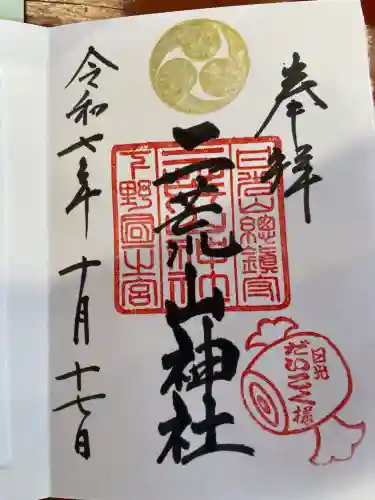 奉拝
日光山總鎮守
二荒山神社
下野國一之宮
日光
だいこく様
令和七年十月十七日